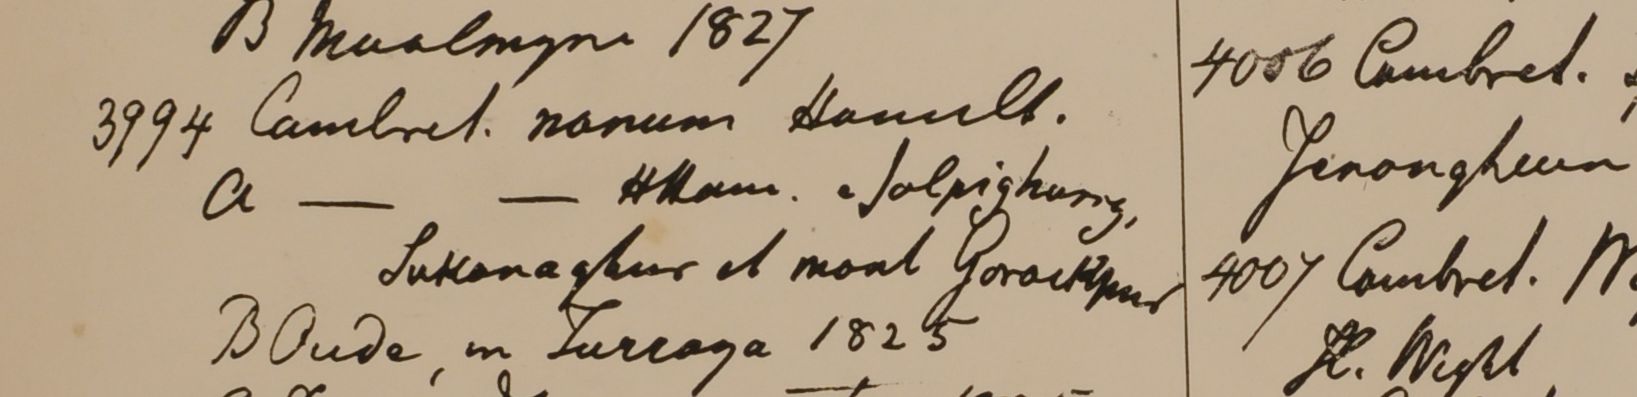 B Moalmyne 1827
3994 Combret. nanum Hamilt.
A — — HHam. Jolpighory,
Sukanaghur et mont Gorackpur
B Oude, in Turraya 1825
4006 Combret.
4007 Combret.
H. Wight